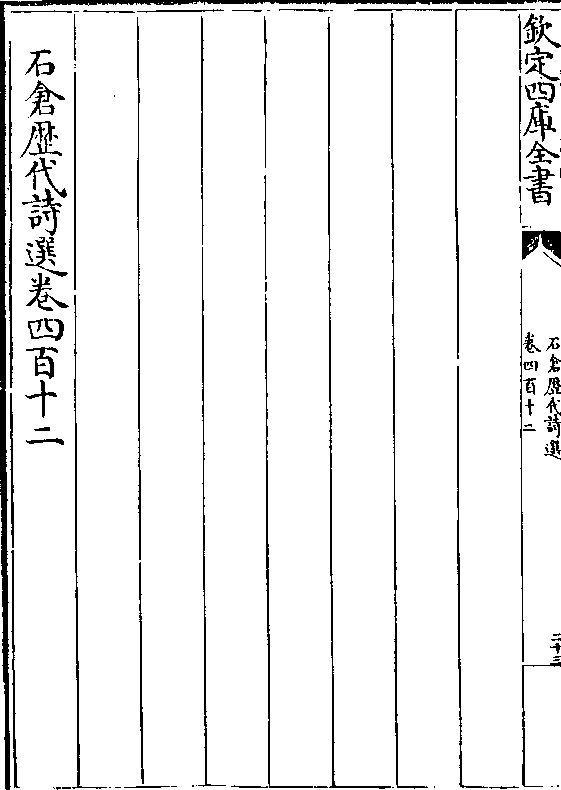 欽定四庫全書
石倉歷代詩選
卷四百十二
二十三
石倉歷代詩選卷四百十二